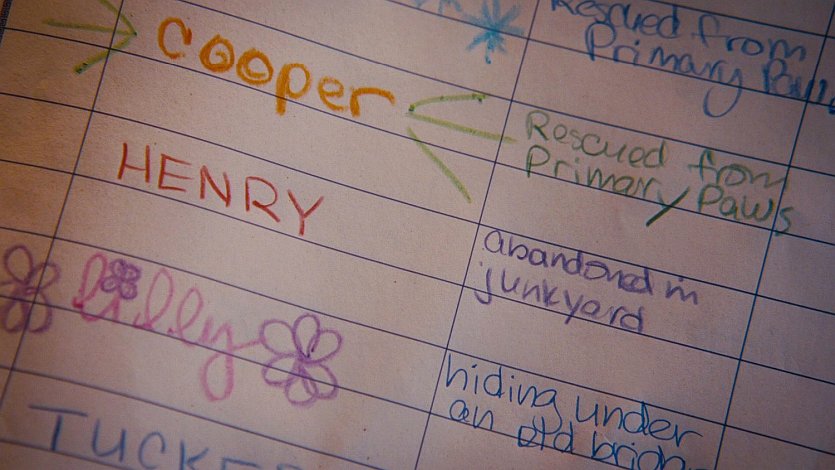 Rescued from
Primary Paws
Cooper
Rescued from
Primary Paws
HENRY
abandoned in
junkyard
lilly
hiding under
an old
TUCKE